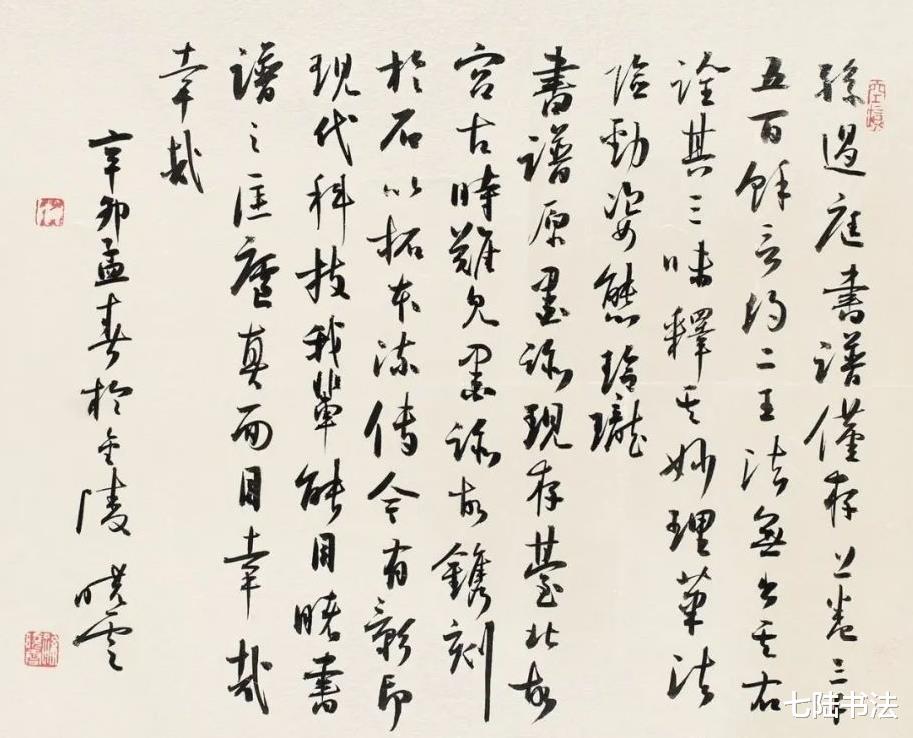 孫過庭書譜僅存上卷三千
五百餘言得二王法無出其右
詮其三昧釋其妙理草法
險勁姿態玲瓏
書譜原墨跡現存臺北故
宮古時難見墨跡故鐫刻
於石以拓本流傳今有影印
現代科技我輩能目睹書
譜之匡廬真面目幸哉
幸哉
辛卯孟春於金陵曉雲
七陆书法